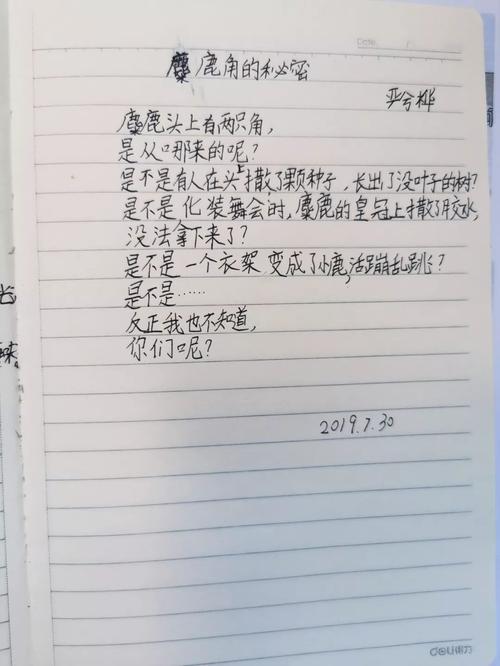 Date
麋鹿角的秘密
严兮桦
麋鹿头上有两只角,
是从哪来的呢?
是不是有人在头上撒了颗种子,长出了没叶子的树?
是不是化装舞会时,麋鹿的皇冠上撒了胶水,
没法拿下来了?
是不是一个衣架变成了小鹿,活蹦乱跳?
是不是……
反正我也不知道,
你们呢?
2019.7.30
deli得力